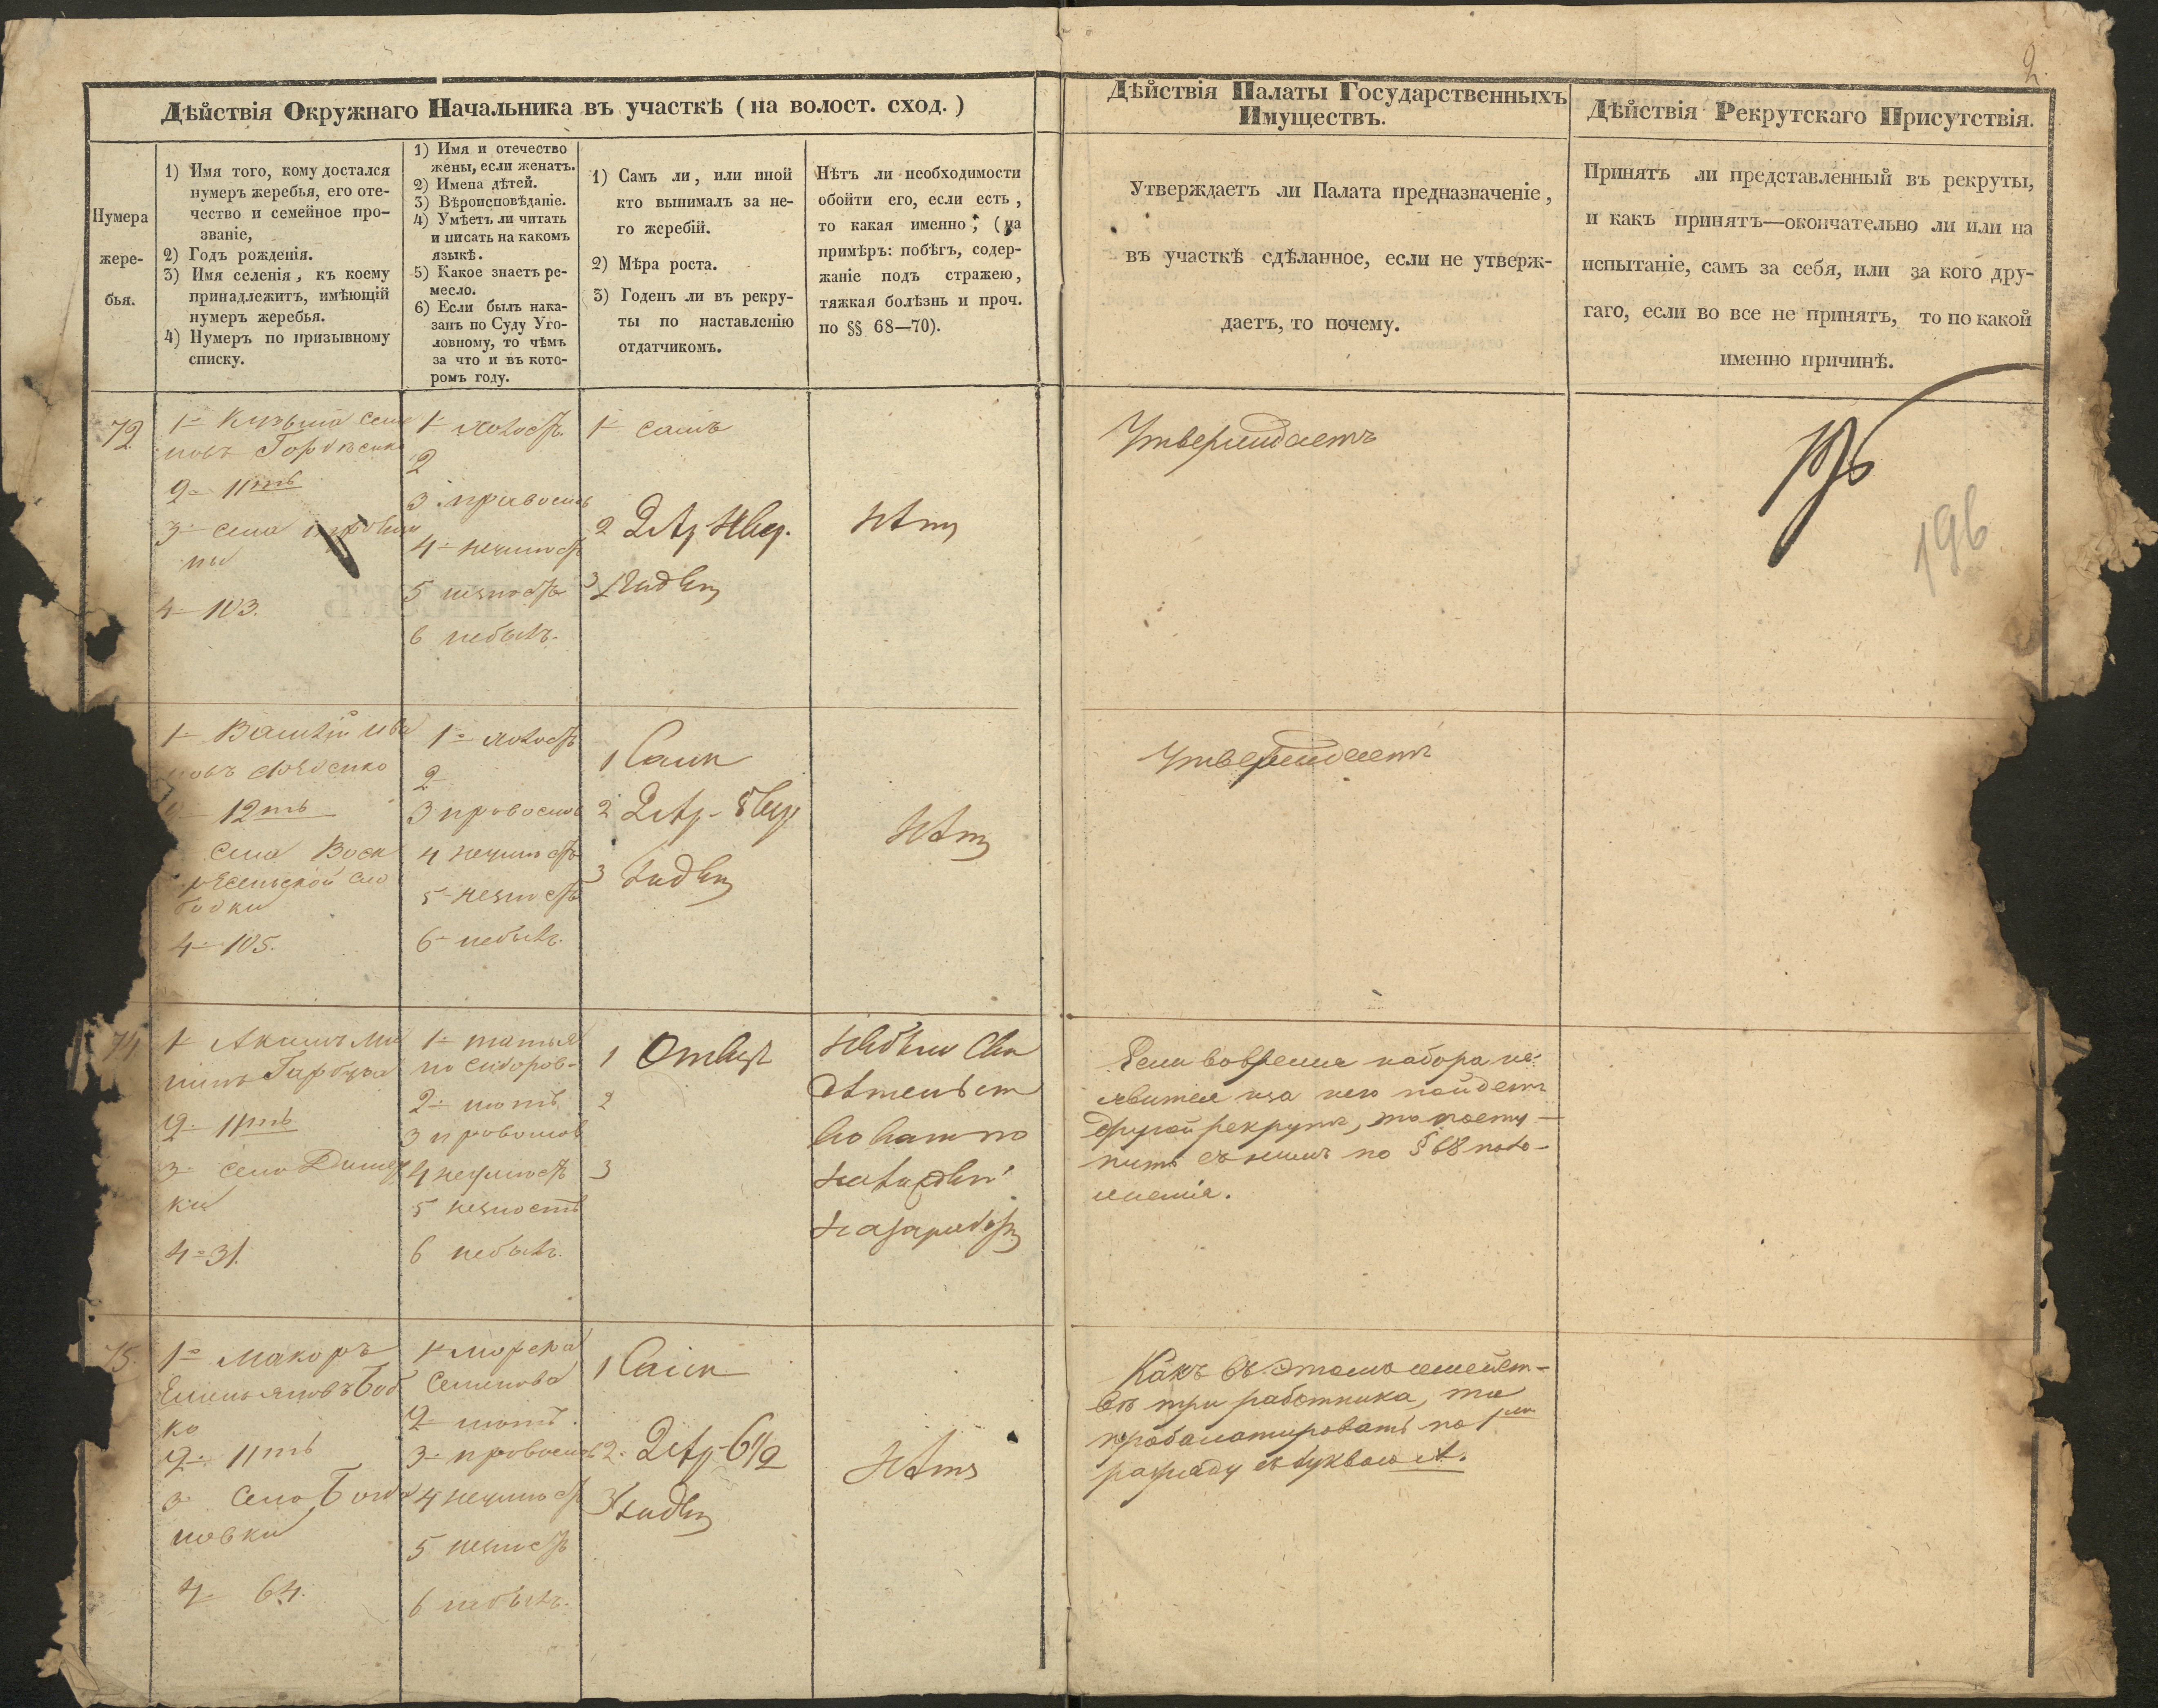 2.
Дѣйствія Окружнаго Начальника въ участкѣ (на волост. сход.)
Дѣйствія Палаты Государственныхъ
Имуществъ.
Дѣйствія Рекрутскаго Присутствія.
Нумера
жере-
бья.
1) Имя того, кому достался
нумеръ жеребья, его оте-
чество и семейное про-
званіе,
2) Годъ рожденія.
3) Имя селенія, къ коему
принадлежитъ, имѣющій
нумеръ жеребья.
4) Нумеръ по призывному
списку.
1) Имя и отечество
жены, если женатъ.
2) Имена дѣтей.
3) Вѣроисповѣданіе.
4) Умѣетъ ли читать
и писать на какомъ
языкѣ.
5) Какое знаетъ ре-
месло.
6) Если былъ нака-
занъ по Суду Уго-
ловному, то чѣмъ
за что и въ кото-
ромъ году.
1) Самъ ли, или иной
кто вынималъ за не-
го жеребій.
2) Мѣра роста.
3) Годенъ ли въ рекру-
ты по наставленію
отдатчикомъ.
Нѣтъ ли необходимости
обойти его, если есть,
то какая именно; (на
примѣръ: побѣгъ, содер-
жаніе подъ стражею,
тяжкая болѣзнь и проч.
по §§ 68—70).
Утверждаетъ ли Палата предназначеніе,
въ участкѣ сдѣланное, если не утверж-
даетъ, то почему.
Принятъ ли представленный въ рекруты,
и какъ принятъ—окончательно ли или на
испытаніе, самъ за себя, или за кого дру-
гаго, если во все не принятъ, то по какой
именно причинѣ.
72
1 Кузьма Семе
новъ
2 11ть
3 села
4 103.
1 холостъ
2
3 православ
4 неумѣетъ
5 незнаетъ
6 небылъ.
1 самъ
2 2 Ар. 4 вер.
3 Годенъ
Нѣтъ
Утверждаетъ
196
1 Василій Ива
новъ
12ть
села Воск
ресенской Сло
бодки
4 105.
1 холостъ
2
3 православ
4 неумѣетъ
5 незнаетъ
6 небылъ.
1 Самъ
2 2 Ар. 8 вер
3 Годенъ
Нѣтъ
Утверждаетъ
74
1 Акимъ
2 11ть
3 село
ки
4 31.
1 Татья
на Сидоров.
2 нѣтъ
3 православ
4 неумѣетъ
5 незнаетъ
6 небылъ.
1 Отецъ
2
3
Если вовремя набора не-
явится иза него пойдетъ
другой рекрутъ, то посту-
пить съ нимъ по § 68 поло-
женія.
75
1 Макаръ
Емельяновъ Боб
ко
2 11ть
3 село
новки
4 64.
1 Марфа
Семенова
2 нѣтъ.
3 православ
4 неумѣетъ
5 незнаетъ
6 небылъ.
1 Самъ
2 2 Ар 6 1/2
3 Годенъ
Нѣтъ
Какъ въ этомъ семейст-
вѣ три работника, то
пробалатировать по 1му
разряду съ буквою А.